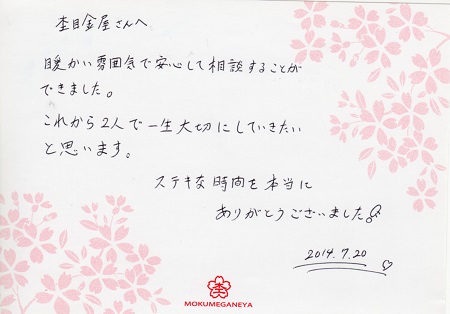 杢目金屋さんへ
暖かい雰囲気で安心して相談することが
できました。
これから2人で一生大切にしていきたい
と思います。
ステキな時間を本当に
ありがとうございました
2014.7.20
MOKUMEGANEYA